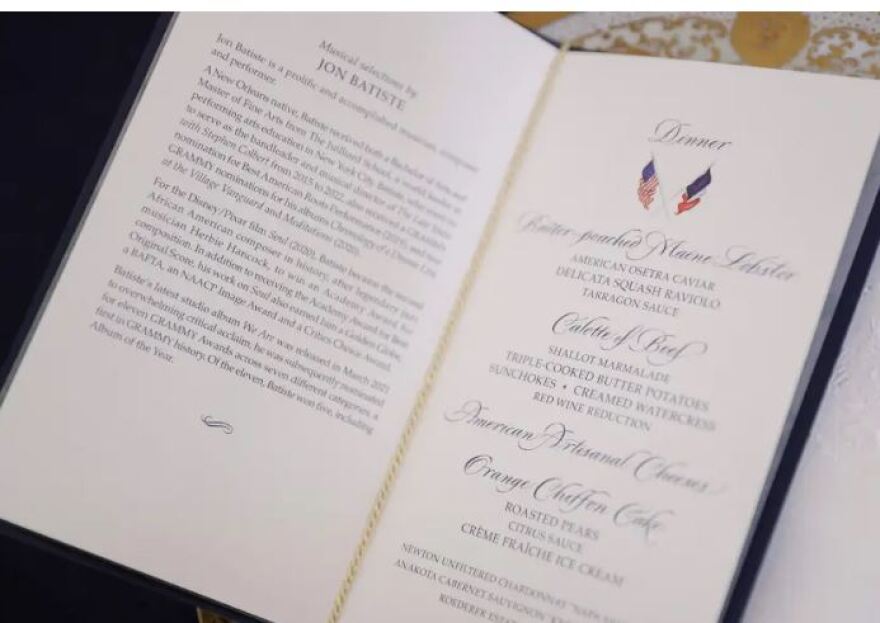 Musical selections by
JON BATISTE
Jon Batiste is a prolific and accomplished musician, composer
and performer.
A New Orleans native, Batiste received both a Bachelor of Arts and
Master of Fine Arts from The Juilliard School, a world leader in
performing arts education in New York City. Batiste, who went on
to serve as the bandleader and musical director of The Late Show
with Stephen Colbert from 2015 to 2022, also received a GRAMMY
nomination for Best American Roots Performance (2019), and
GRAMMY nominations for his albums Chronology of a Dream: Live
at the Village Vanguard and Meditations (2020).
For the Disney/Pixar film Soul (2020), Batiste became the second
African American composer in history, after legendary jazz
musician Herbie Hancock, to win an Academy Award for
composition. In addition to receiving the Academy Award for Best
Original Score, his work on Soul also earned him a Golden Globe,
a BAFTA, an NAACP Image Award and a Critics Choice Award.
Batiste's latest studio album We Are was released in March 2021
to overwhelming critical acclaim, he was subsequently nominated
for eleven GRAMMY Awards across seven different categories, a
first in GRAMMY history. Of the eleven, Batiste won five, including
Album of the Year.
Dinner
Butter-poached Maine Lobster
AMERICAN OSETRA CAVIAR
DELICATA SQUASH RAVIOLO
TARRAGON SAUCE
Calotte of Beef
SHALLOT MARMALADE
TRIPLE-COOKED BUTTER POTATOES
SUNCHOKES • CREAMED WATERCRESS
RED WINE REDUCTION
American Artisanal Cheeses
Orange Chiffon Cake
ROASTED PEARS
CITRUS SAUCE
CRÈME FRAÎCHE ICE CREAM
NEWTON UNFILTERED CHARDONNAY "NAPA
ANAKOTA CABERNET SAUVIGNON
ROEDERER ESTATE